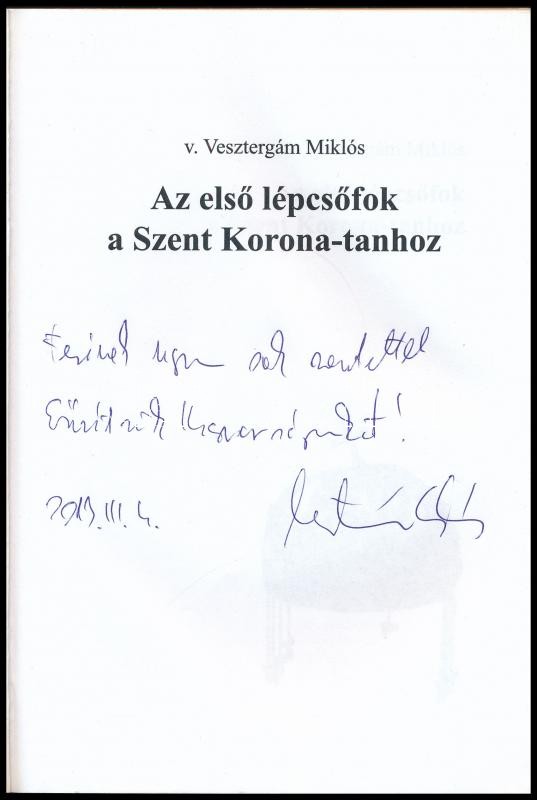 v. Vesztergám Miklós
Az első lépcsőfok
a Szent Korona-tanhoz
Ferinek sok szeretettel
Magyarságunkat!
2013. III. 4.